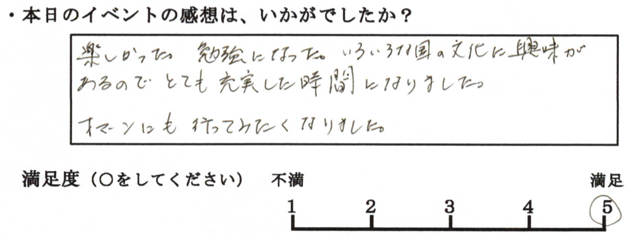 ・本日のイベントの感想は、いかがでしたか？
楽しかった。勉強になった。いろいろな国の文化に興味が
あるので とても充実した時間になりました。
オマーンにも 行ってみたくなりました。
満足度（○をしてください） 不満 満足
1 2 3 4 5